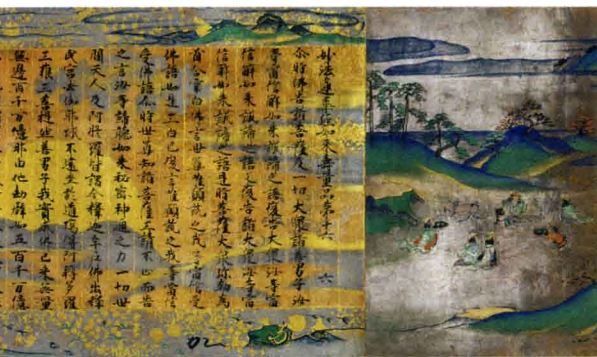 妙法蓮華經如來壽量品第十六 六
尒時佛告諸菩薩及一切大衆諸善男子汝
等當信解如來誠諦之語復告大衆汝等當
信解如來誠諦之語又復告諸大衆汝等當
信解如來誠諦之語是時菩薩大衆弥勒為
首合掌白佛言世尊唯願說之我等當信受
佛語如是三白已復言唯願說之我等當信
受佛語尒時世尊知諸菩薩三請不止而告
之言汝等諦聽如來秘密神通之力一切世
間天人及阿修羅皆謂今釋迦牟尼佛出釋
氏宮去伽耶城不遠坐於道場得阿耨多羅
三藐三菩提然善男子我實成佛已來無量
無邊百千万億那由他劫譬如五百千万億